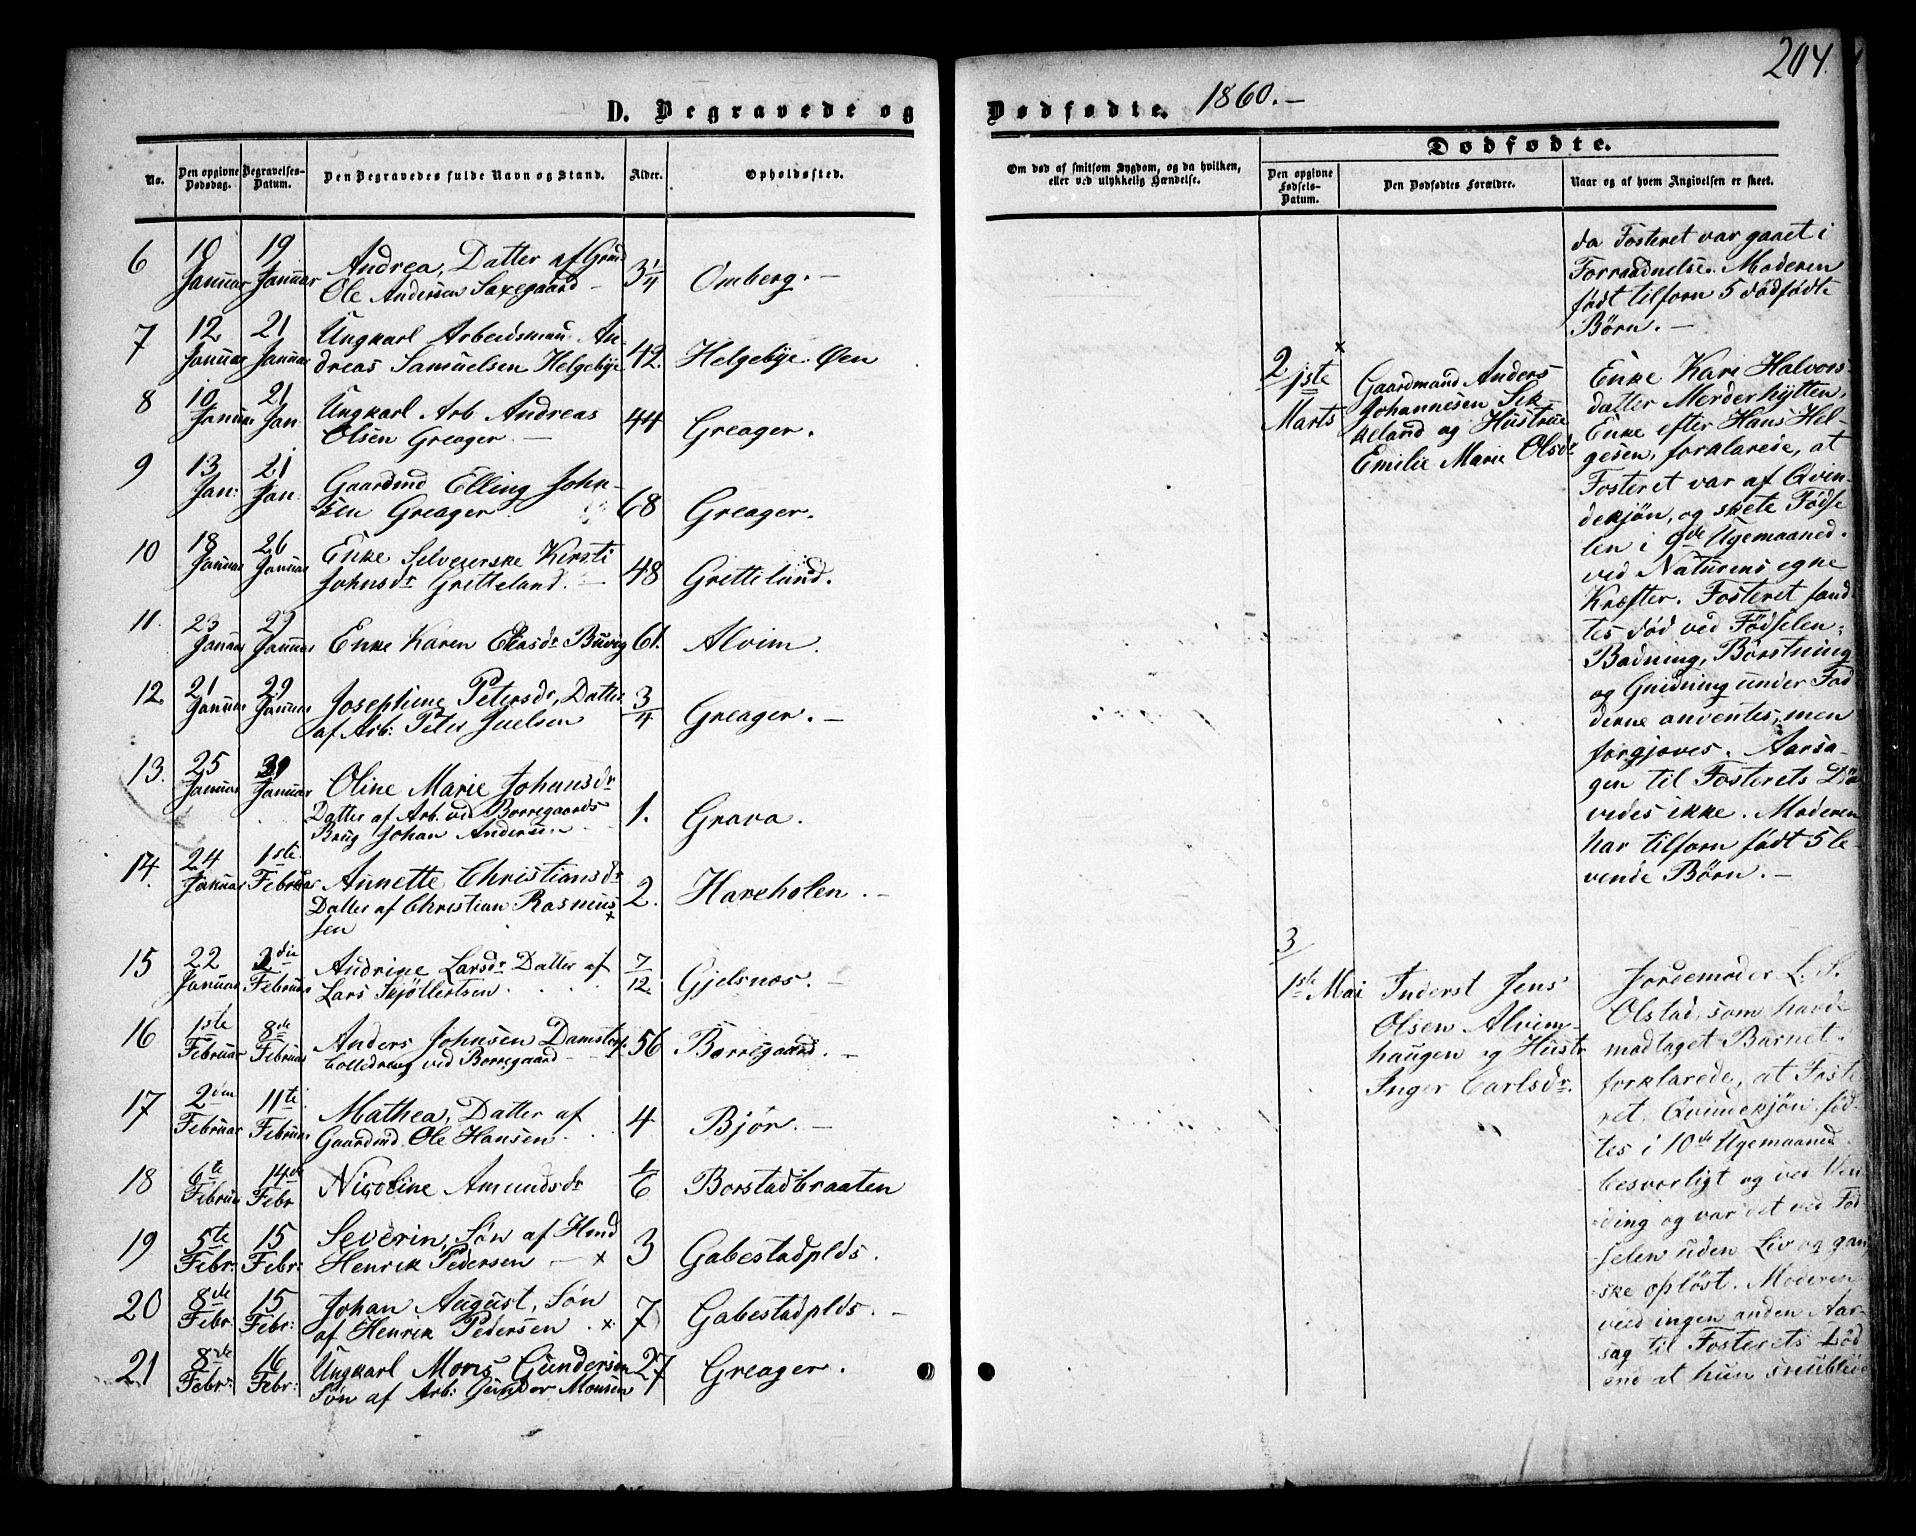 204.
D. Begravede og
Dødfødte. 1860.-
No.
Den opgivne Dødsdag.
Begravelses-Datum.
Den Begravedes fulde Navn og Stand.
Alder.
Opholdssted.
Om død af smitsom Sygdom, og da hvilken,
eller ved ulykkelig Hændelse.
Dødfødte.
Den opgivne Fødsels-Datum.
Den Dødfødtes Forældre.
Naar og af hvem Angivelsen er skeet.
6 10 Januar 19 Januar Andrea, Datter af Grnd
Ole Andersen Saxegaard - 3 1/4 Omberg. -
7 12 Januar 21 Januar Ungkarl Arbeidsman An-
dreas Samuelsen Helgebye 42. Helgebye Øen
8 10 Januar 21 Jan Ungkarl Arb Andreas
Olsen Greager. - 44 Greager.
9 13 Jan: 21 Jan. Gaardmd Elling John-
sen Greager 68 Greager.
10 18 Januar 26 Januar Enke Selveierske Kirsti
Johnsdr Gretteland. - 48 Gretteland.
11. 23 Januar 29 Januar Enke Karen Buvig 61. Alvim.
12. 21 Januar 29 Januar Josephine Petersdr, Datter
af Arb: Peter Juelsen 3/4 Greager. -
13. 25 Januar Januar Oline Marie Johansdr
Datter af Arb. ved Borregaards
Brug Johan Andersen 1. Grava.
14. 24 Januar 1ste Februar Annette Christiansdr
Datter af Christian Rasmus x
sen 2. Hareholen. -
15 22 Januar 2die Februar Andrine Larsdr Datter af
Lars Skjöllertsen 7/12. Gjelsnæs. -
16 1ste Februar 8de Februar Anders Johnsen
ved Borregaard 56 Borregaard. -
17 2den Februar 11te Februar Mathea, Datter af
Gaardmd. Ole Hansen. 4 Bjør. -
18 6te Februar 14de Febr Nicoline Amundsdr 1/6 Borstadbraaten
19 5te Febr. 15 Febr: Severin, Søn af Hmd
Henrik Pedersen - x 3 Gabestadplds.
20 8de Febr. 15 Febr: Johan August, Søn
af Henrik Pedersen . x 7 Gabestadplds. -
21 8de Febr: 16 Febr: Ungkarl Mons Gundersen
Søn af Arb: Gunder Monsen 27 Greager.
da Fosteret var gaaet i
Forraadnelse. Moderen
født tilforn 5 dødfødte
Børn. -
x
2 1ste Marts
Gaardmand Anders
Johannesen Sik-
keland og Hustrue
Emilie Marie Olsdr
Enke Kari Halvors-
datter Mørderhytten,
Enke efter Hans Hel-
gesen, forklarede, at
Fosteret var af Qvin-
dekjön, og skete Fødse
len i 9de Ugemaaned.
ved Naturens egne
Kræfter. Fosteret fand-
tes død ved Fødselen;
Badning, Børstning
og Gnidning under Fød
derne anventes, men
forgjæves. Aarsa-
gen til Fosterets Død
vedes ikke. Moderen
har tilforn født 5 le-
vende Børn. -
3
1ste Mai
Inderst Jens
Olsen Alvim-
haugen og Hustr
Inger Carlsdr.
Jordemoder L. S.
Olstad, som havde
modtaget Barnet.
forklarede, at Foste
ret, Qvindekjön, fød-
tes i 10de Ugemaaned
besværligt og ved Ven
-ding og var det ved Fød
-selen uden Liv og gan
-ske opløst. Moderen
veed ingen anden Aar-
sag til Fosterets Død
end at hun snublede